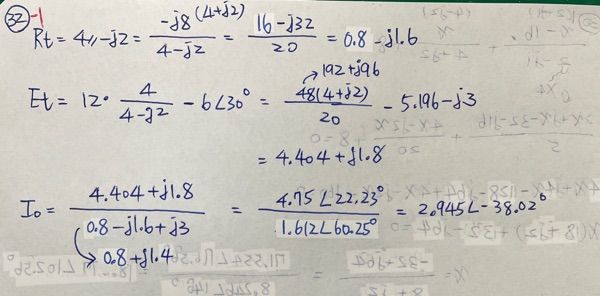 32 -1
Rt = 4 // -j2 = -j8(4+j2) / 4-j2 = 16-j32 / 20 = 0.8 - j1.6
192+j96
Et = 12 · 4 / 4-j2 - 6∠30° = 48(4+j2) / 20 - 5.196 - j3
= 4.404 + j1.8
Io = 4.404+j1.8 / 0.8-j1.6+j3 = 4.75∠22.23° / 1.612∠60.25° = 2.945∠-38.02°
0.8+j1.4